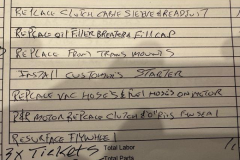 REPLACE CLUTCH CABLE SLEEVE & READJUST
REPLACE OIL FILLER BREATHER & FILL CAP
REPLACE FRONT TRANS MOUNTS
INSTALL CUSTOMER'S STARTER
REPLACE VAC HOSES & FUEL HOSES ON MOTOR
R&R MOTOR REPLACE CLUTCH & O'RINGS FW SEAL
RESURFACE FLYWHEEL
3x TICKETS
Total Labor
Total Parts